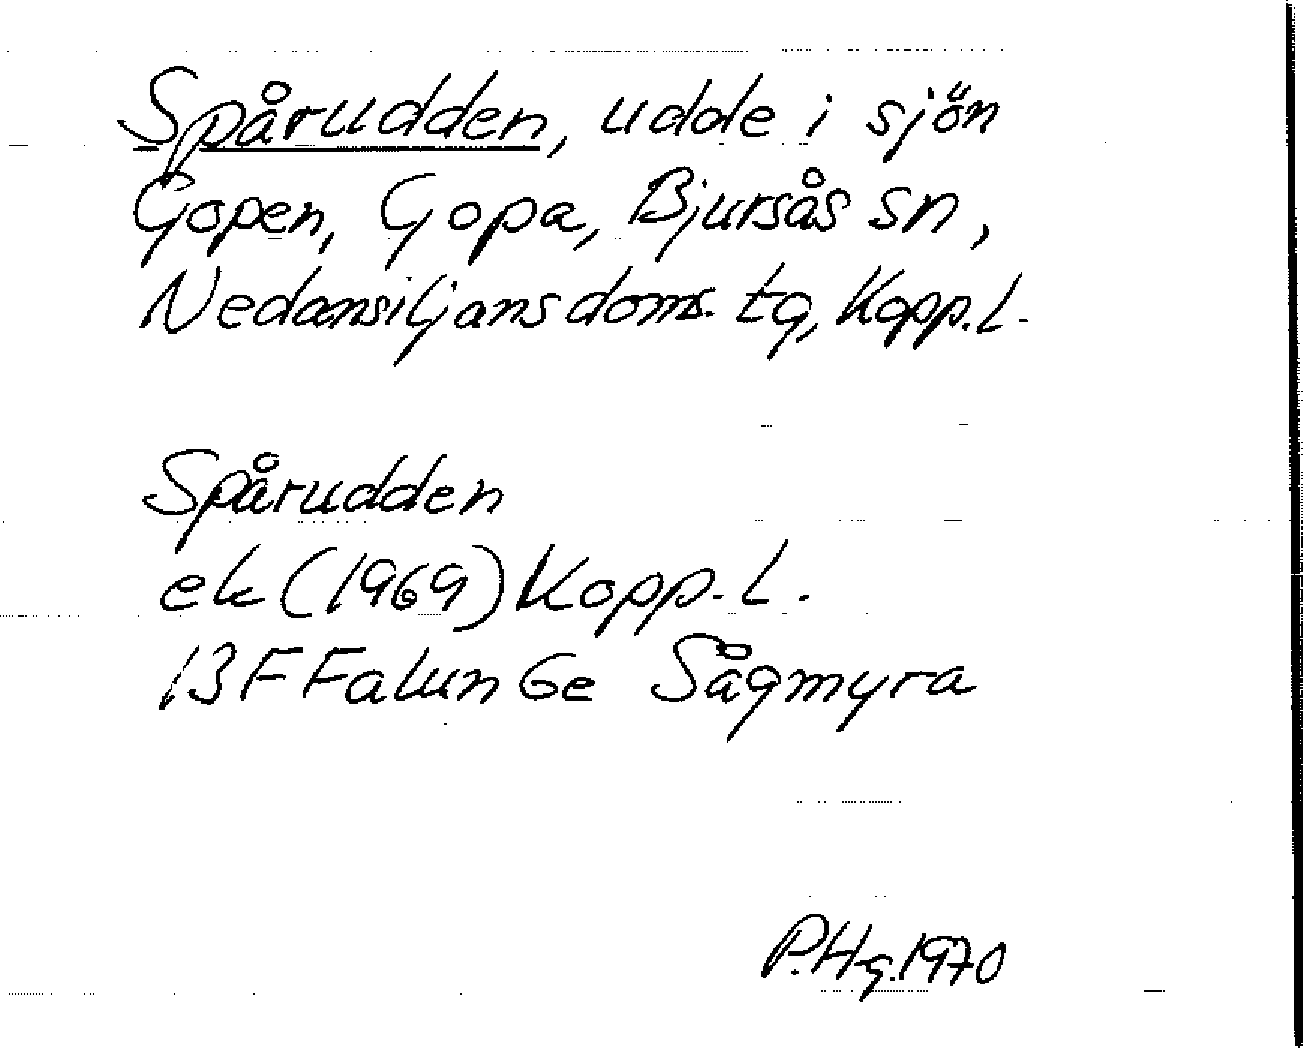 Spårudden, udde i sjön
Gopen, Gopa, Bjursås sn,
Nedansiljans doms. tg, Kopp. l.
Spårudden
ek (1969) Kopp. l.
13F Falun 6e Sågmyra
P.Hg. 1970